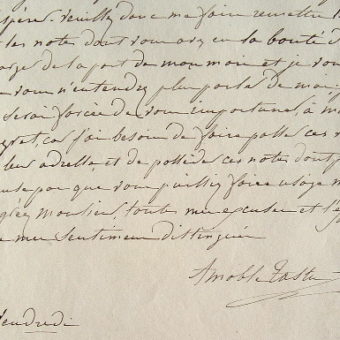 espère. veuillez donc me faire remettre
les notes dont vous avez eu la bonté d
de la part de mon mari et je vou
vous n'entendrez plus parler de moi.
serai forcée de vous importuner, à m
egret, car j'ai besoin de faire passer ces
leur adresse, et de posséder ces notes dont
pas que vous puissiez faire usage
Monsieur, toutes mes excuses et
mes sentimens distingués
Amable Tastu
Vendredi